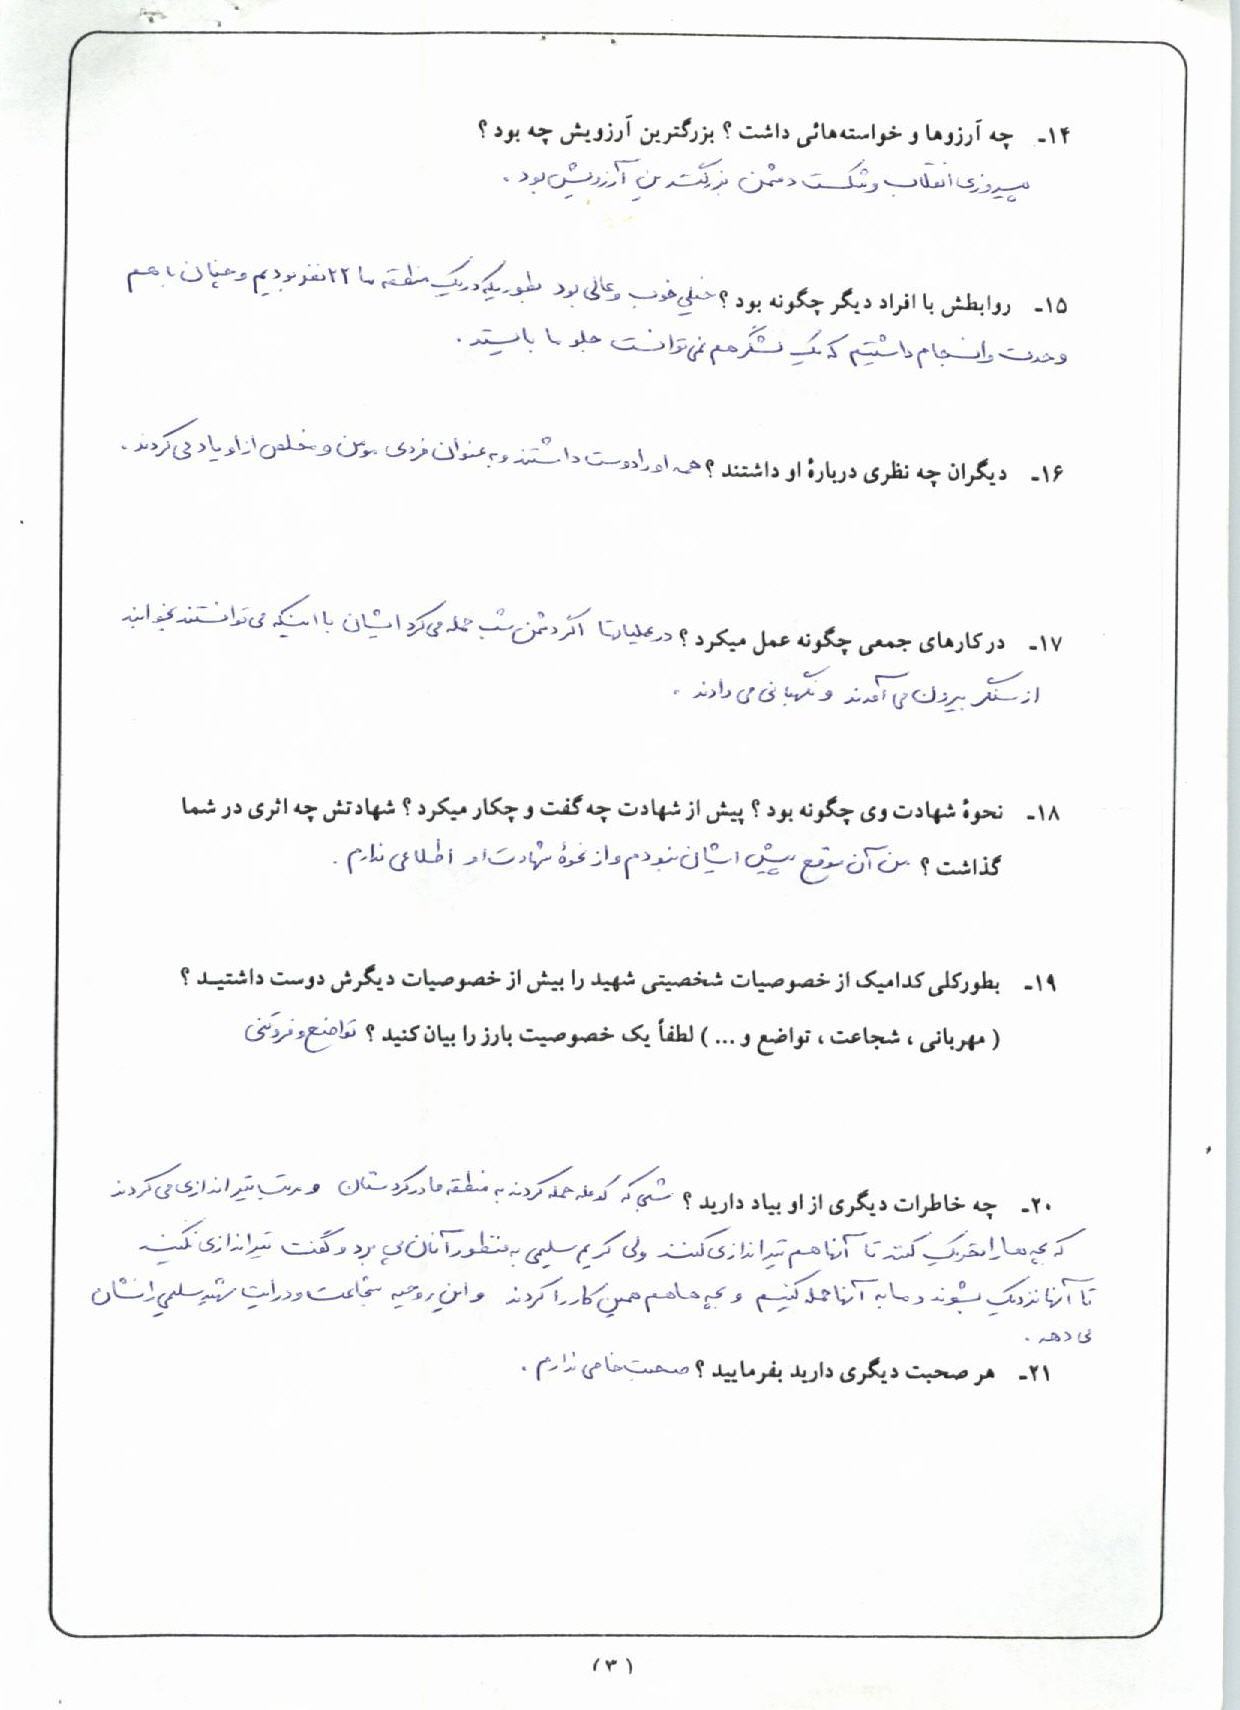 ۱۴ـ چه آرزوها و خواسته‌هائی داشت ؟ بزرگترین آرزویش چه بود ؟
پیروزی انقلاب و شکست دشمن بزرگترین آرزویش بود .
۱۵ـ روابطش با افراد دیگر چگونه بود ؟ خیلی خوب و عالی بود بطوریکه در یک منطقه ما ۲۲ نفر بودیم و چنان با هم
وحدت و انسجام داشتیم که یک لشگر هم نمی‌توانست جلو ما بایستد .
۱۶ـ دیگران چه نظری دربارۀ او داشتند ؟ همه او را دوست داشتند و به عنوان فردی مومن و مخلص از او یاد می‌کردند .
۱۷ـ در کارهای جمعی چگونه عمل میکرد ؟ در عملیاتها اگر دشمن شب حمله می‌کرد ایشان با اینکه می‌توانستند بخوابند
از سنگر بیرون می‌آمدند و نگهبانی می‌دادند .
۱۸ـ نحوۀ شهادت وی چگونه بود ؟ پیش از شهادت چه گفت و چکار میکرد ؟ شهادتش چه اثری در شما
گذاشت ؟ من آن موقع پیش ایشان نبودم و از نحوۀ شهادت او اطلاعی ندارم .
۱۹ـ بطور کلی کدامیک از خصوصیات شخصیتی شهید را بیش از خصوصیات دیگرش دوست داشتید ؟
( مهربانی ، شجاعت ، تواضع و ... ) لطفاً یک خصوصیت بارز را بیان کنید ؟ تواضع و فروتنی
۲۰ـ چه خاطرات دیگری از او بیاد دارید ؟ شبی که کومله حمله کردند به منطقه ما در کردستان و مرتب تیراندازی می‌کردند
که بچه‌ها را تحریک کنند تا آنها هم تیراندازی کنند ولی کریم سلیمی به منظور آنان پی برد و گفت تیراندازی نکنید
تا آنها نزدیک بشوند و ما به آنها حمله کنیم و بچه‌ها هم همین کار را کردند و این روحیه شجاعت و درایت شهید سلیمی را نشان
می دهد .
۲۱ـ هر صحبت دیگری دارید بفرمایید ؟ صحبت خاصی ندارم .
(۳)